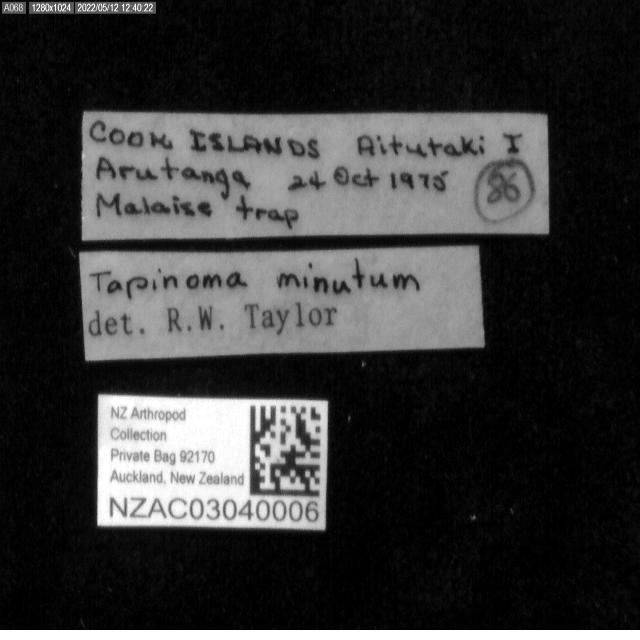 A068 1280x1024 2022/05/12 12:40:22
COOK ISLANDS Aitutaki I
Arutanga 24 Oct 1975 86
Malaise trap
Tapinoma minutum
det. R.W. Taylor
NZ Arthropod
Collection
Private Bag 92170
Auckland, New Zealand
NZAC03040006